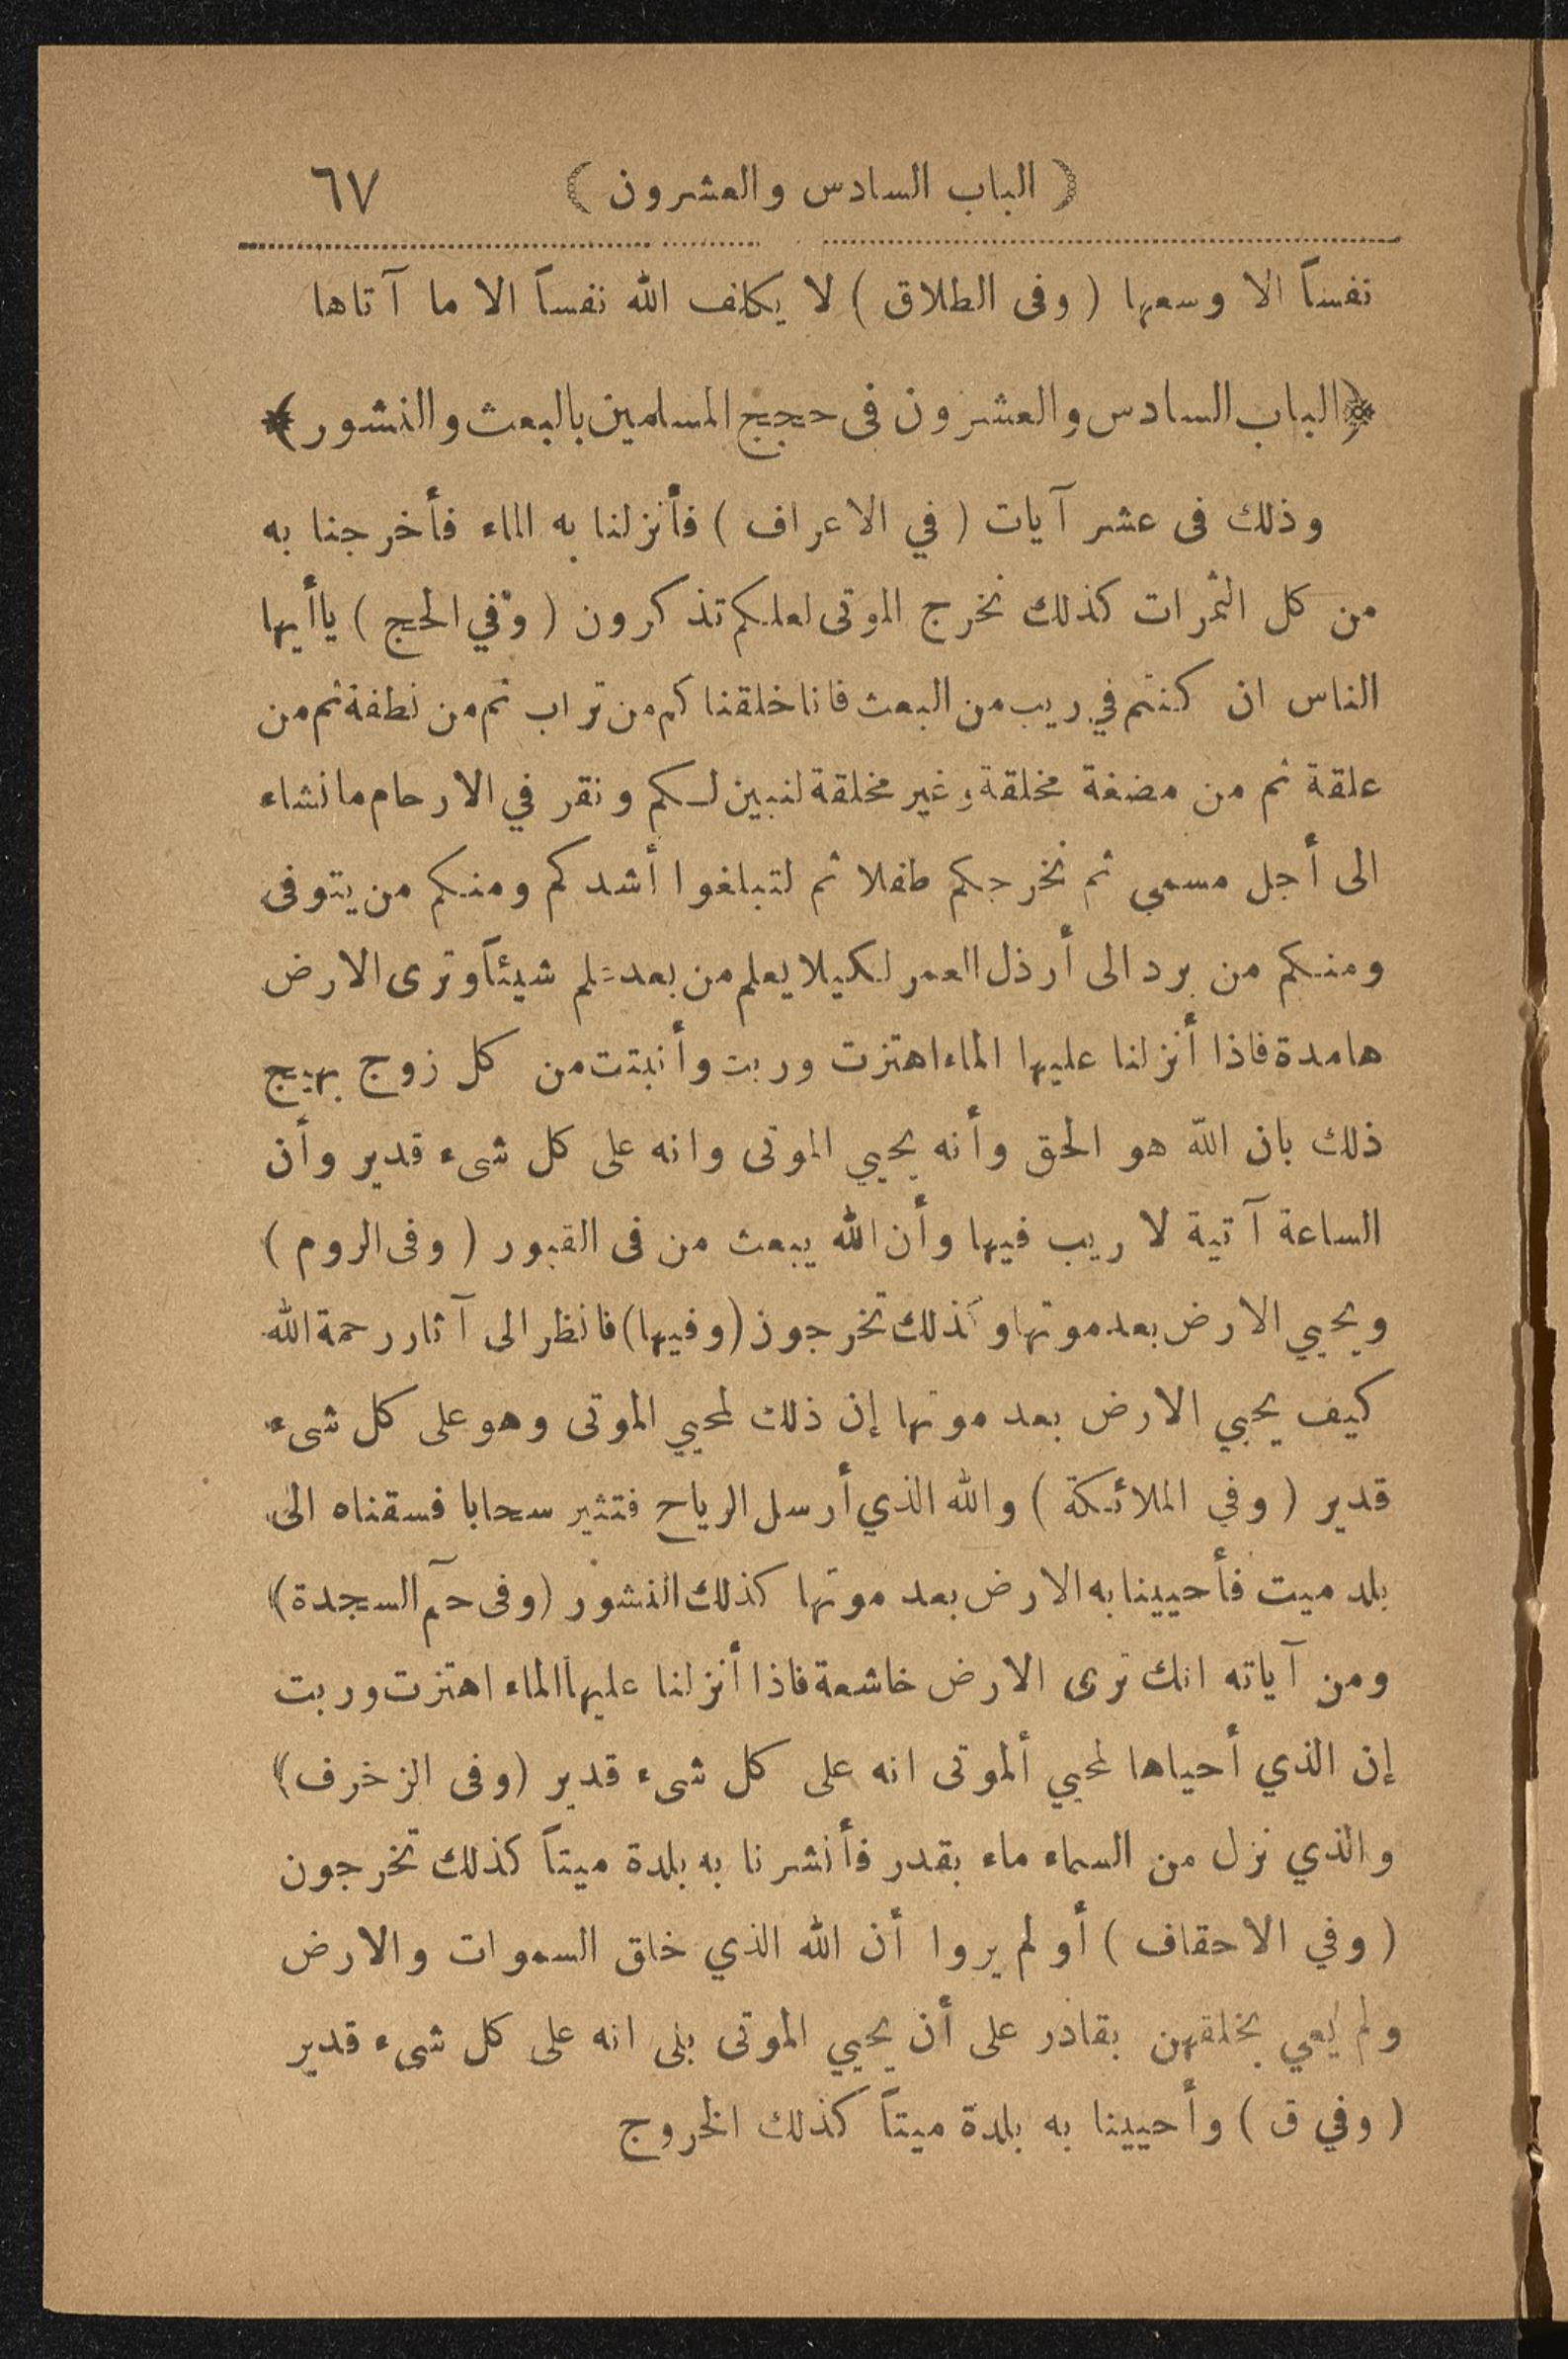 ( الباب السادس والعشرون ) ٦٧
نفساً الا وسعها ( وفى الطلاق ) لا يكلف الله نفساً الا ما آتاها
﴿ الباب السادس والعشرون فى حجج المسلمين بالبعث والنشور ﴾
وذلك فى عشر آيات ( في الاعراف ) فأنزلنا به الماء فأخرجنا به
من كل الثمرات كذلك نخرج الموتى لعلكم تذكرون ( وفي الحج ) ياأيها
الناس ان كنتم في ريب من البعث فانا خلقناكم من تراب ثم من نطفة ثم من
علقة ثم من مضغة مخلقة وغير مخلقة لنبين لكم ونقر في الارحام مانشاء
الى أجل مسمي ثم نخرجكم طفلا ثم لتبلغوا أشدكم ومنكم من يتوفى
ومنكم من يرد الى أرذل العمر لكيلا يعلم من بعد علم شيئاً وترى الارض
هامدة فاذا أنزلنا عليها الماء اهتزت وربت وأنبتت من كل زوج بهيج
ذلك بان الله هو الحق وأنه يحيي الموتى وانه على كل شىء قدير وأن
الساعة آتية لا ريب فيها وأن الله يبعث من فى القبور ( وفى الروم )
ويحيي الارض بعد موتها وكذلك تخرجون (وفيها) فانظر الى آثار رحمة الله
كيف يحيي الارض بعد موتها إن ذلك لمحيي الموتى وهو على كل شىء
قدير ( وفي الملائكة ) والله الذي أرسل الرياح فتثير سحابا فسقناه الى
بلد ميت فأحيينا به الارض بعد موتها كذلك النشور (وفى حمٓ السجدة)
ومن آياته انك ترى الارض خاشعة فاذا أنزلنا عليها الماء اهتزت وربت
إن الذي أحياها لمحيي ألموتى انه على كل شىء قدير (وفى الزخرف)
والذي نزل من السماء ماء بقدر فأنشرنا به بلدة ميتاً كذلك تخرجون
( وفي الاحقاف ) أو لم يروا أن الله الذي خلق السموات والارض
ولم يعي بخلقهن بقادر على أن يحيي الموتى بلى انه على كل شىء قدير
( وفي ق ) وأحيينا به بلدة ميتاً كذلك الخروج